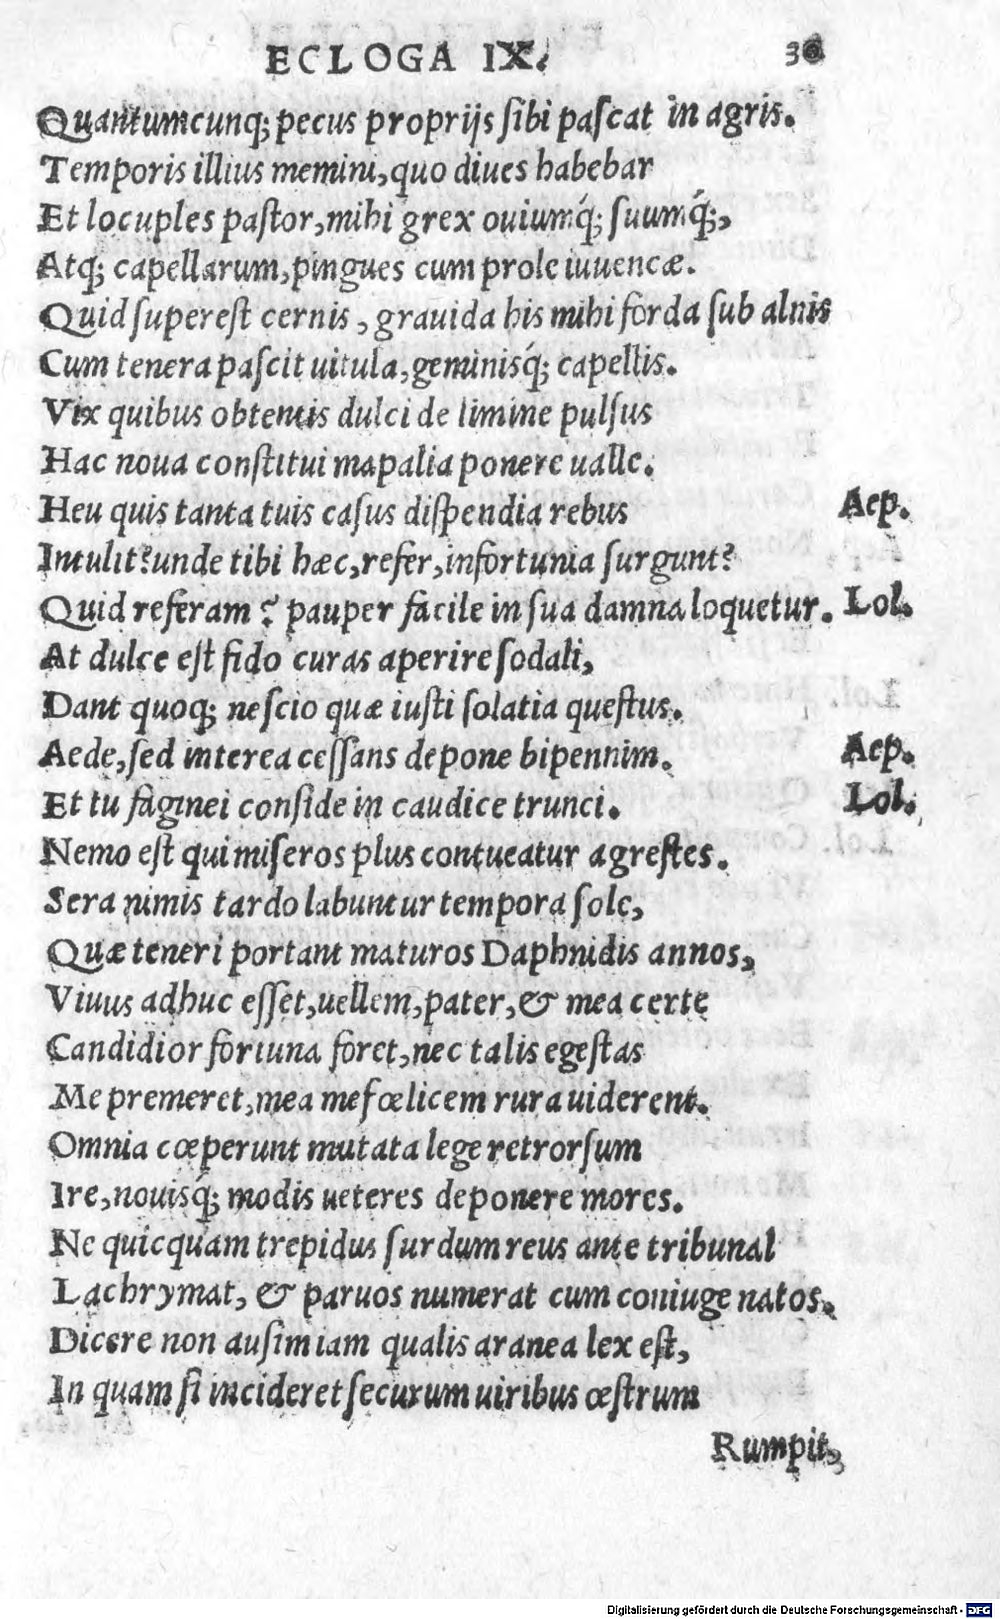 ECLOGA IX.
Quantumcunq; pecus proprijs ſibi paſcat in agris.
Temporis illius memini, quo diues habebar
Et locuples paſtor, mihi grex ouiumq́; ſuumq́;,
Atq; capellarum, pingues cum prole iuuencæ.
Quid ſupereſt cernis, grauida his mihi forda ſub alnis
Cum tenera paſcit uitula, geminisq́; capellis.
Vix quibus obtentis dulci de limine pulſus
Hac noua conſtitui mapalia ponere ualle.
Heu quis tanta tuis caſus diſpendia rebus Aep.
Intulit? unde tibi hæc, refer, infortunia ſurgunt?
Quid referam? pauper facile in ſua damna loquetur. Lol.
At dulce eſt fido curas aperire ſodali,
Dant quoq; neſcio quæ iuſti ſolatia queſtus.
Aede, ſed interea ceſſans depone bipennim. Aep.
Et tu faginei conſide in caudice trunci. Lol.
Nemo eſt qui miſeros plus contueatur agreſtes.
Sera nimis tardo labuntur tempora ſole,
Quæ teneri portant maturos Daphnidis annos,
Viuus adhuc eſſet, uellem, pater, & mea certe
Candidior fortuna foret, nec talis egeſtas
Me premeret, mea me fœlicem rura uiderent.
Omnia cœperunt mutata lege retrorſum
Ire, nouisq́; modis ueteres deponere mores.
Ne quicquam trepidus ſurdum reus ante tribunal
Lachrymat, & paruos numerat cum coniuge natos.
Dicere non auſim iam qualis aranea lex eſt,
In quam ſi incideret ſecurum uiribus œſtrum
Rumpit,
Digitalisierung gefördert durch die Deutsche Forschungsgemeinschaft - DFG